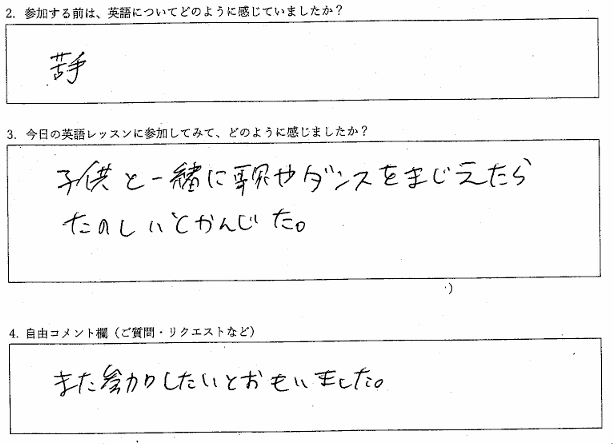 2. 参加する前は、英語についてどのように感じていましたか？
苦手
3. 今日の英語レッスンに参加してみて、どのように感じましたか？
子供と一緒に歌やダンスをまじえたら
たのしいとかんじた。
4. 自由コメント欄（ご質問・リクエストなど）
また参加したいとおもいました。